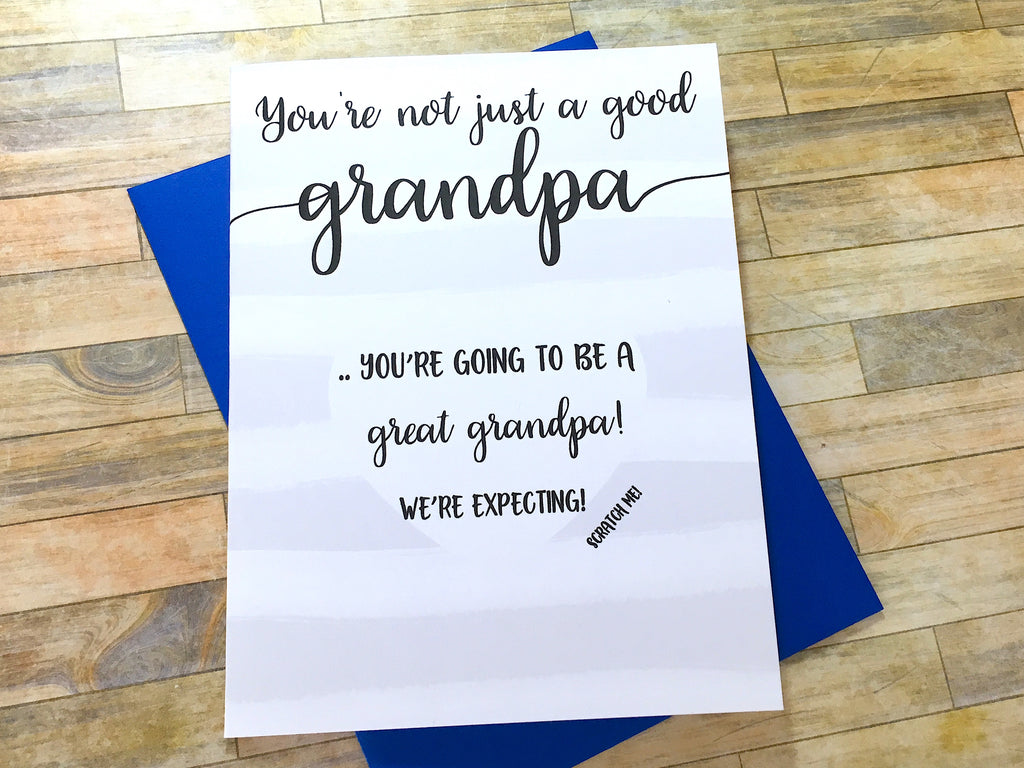 You're not just a good
grandpa
.. YOU'RE GOING TO BE A
great grandpa!
WE'RE EXPECTING!
SCRATCH ME!